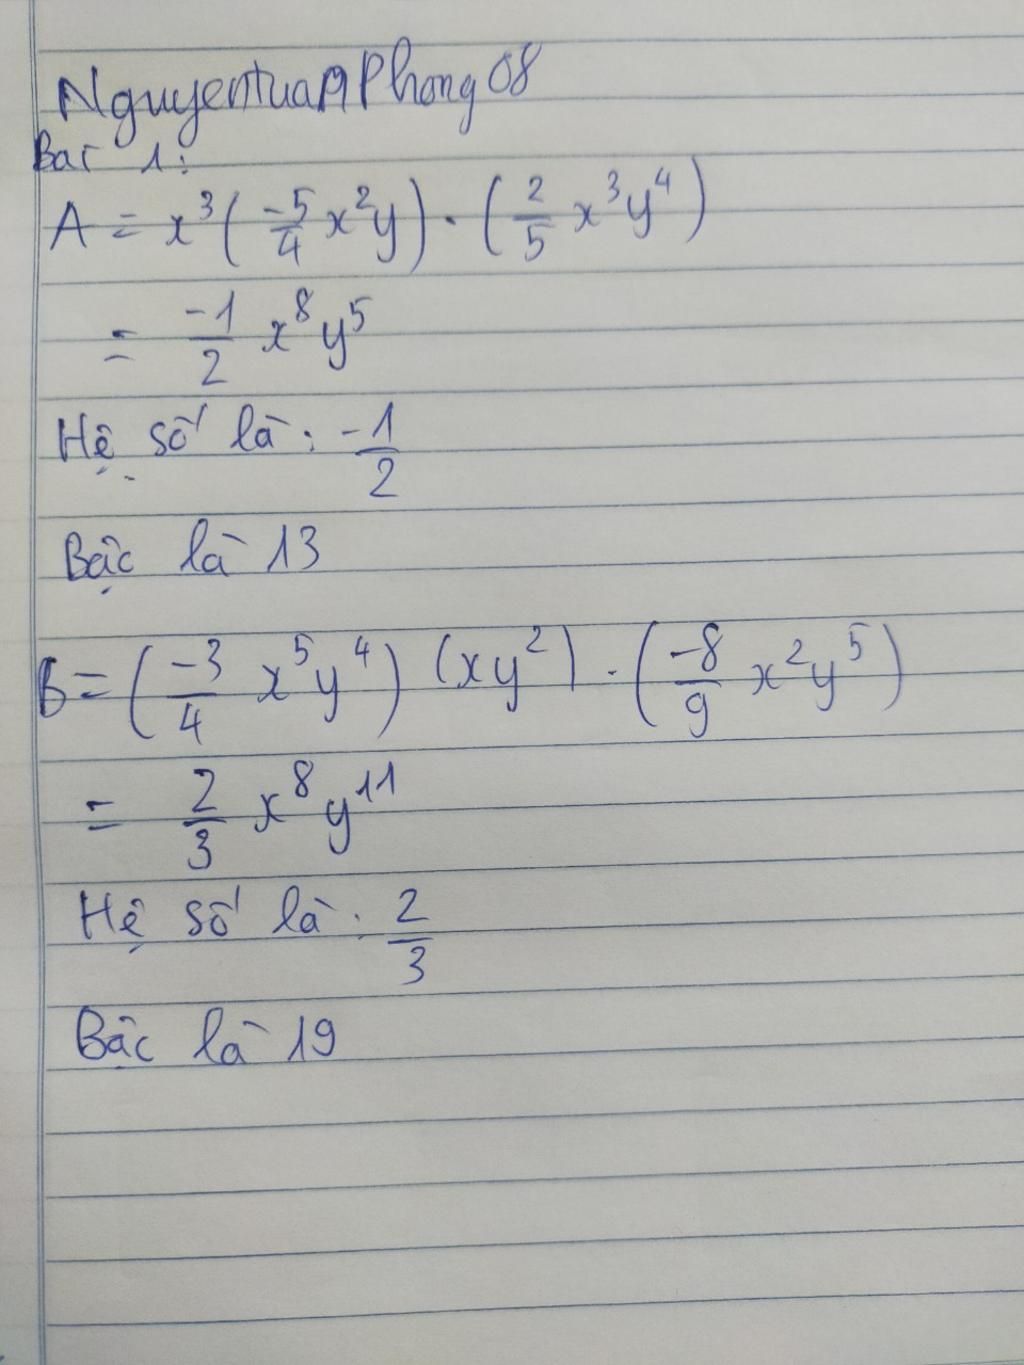 NguyentuanPhong08
Bài 1:
A = x³(-5/4 x²y) · (2/5 x³y⁴)
= -1/2 x⁸y⁵
Hệ số là: -1/2
Bậc là 13
B = (-3/4 x⁵y⁴) (xy²) · (-8/9 x²y⁵)
= 2/3 x⁸y¹¹
Hệ số là: 2/3
Bậc là 19